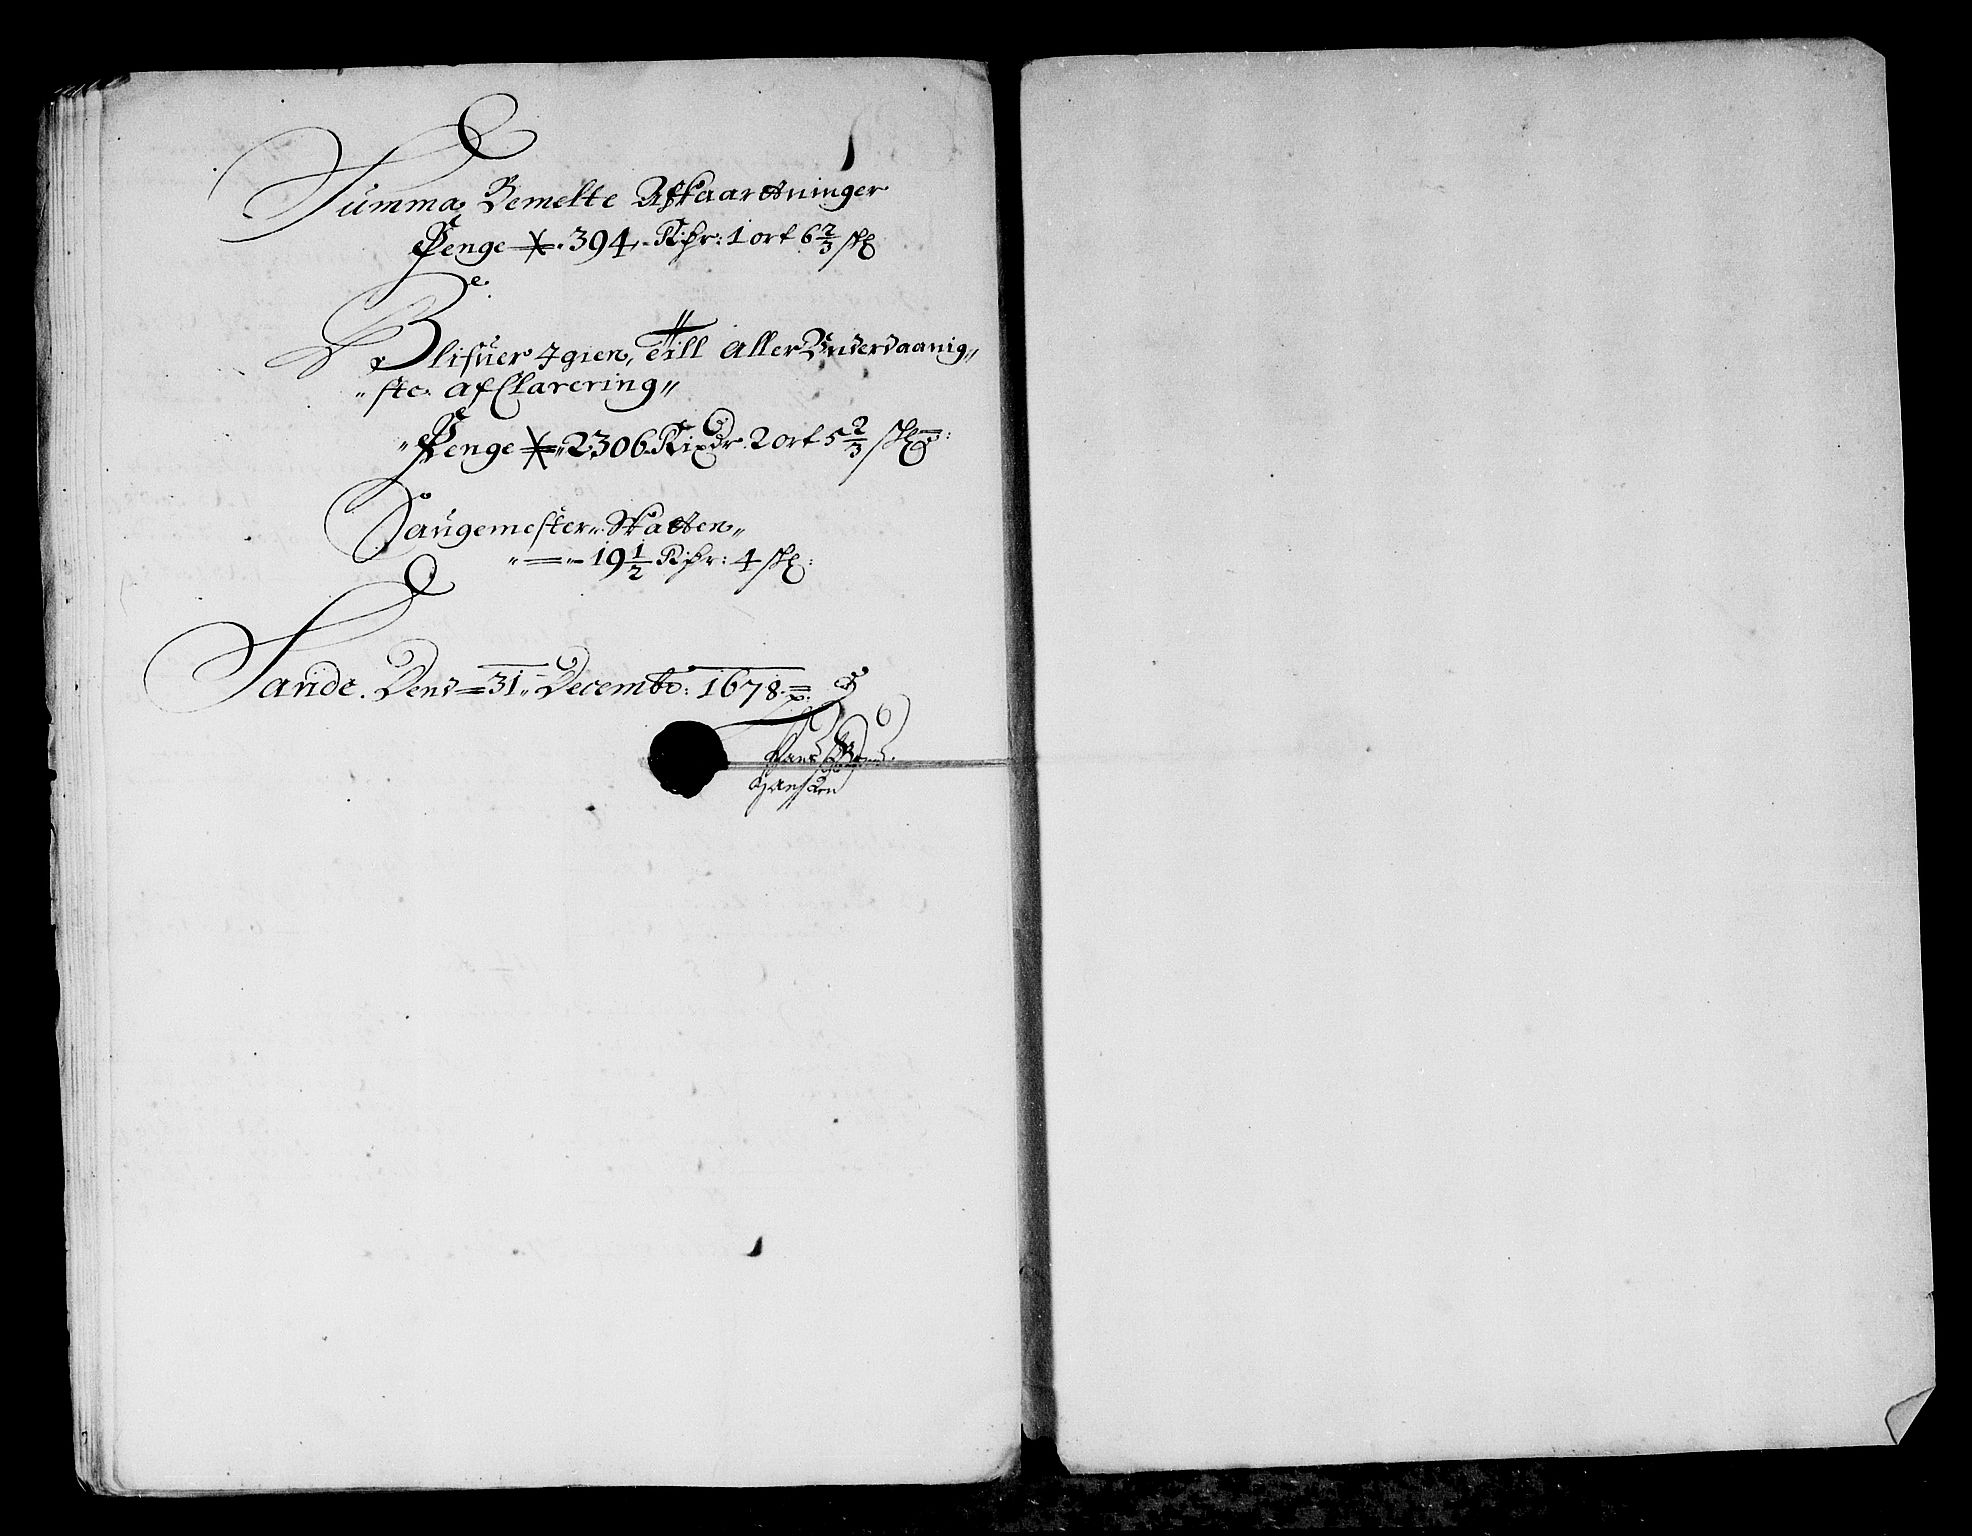 Summa Bemelte Afkaartninger
Penge 394 Rixr: 1 ort 6 2/3 sk
Blifuer Igien, till aller Underdaanig„
„ste afClarering„
„Penge 2306 Rixdr 2 ort 5 2/3 sk:
Saugemester„ Skatten„
„ = „ 19 1/2 Rixr: 4 sk:
Sande. Dend 31 Decembr: 1678
Hans
Hansen